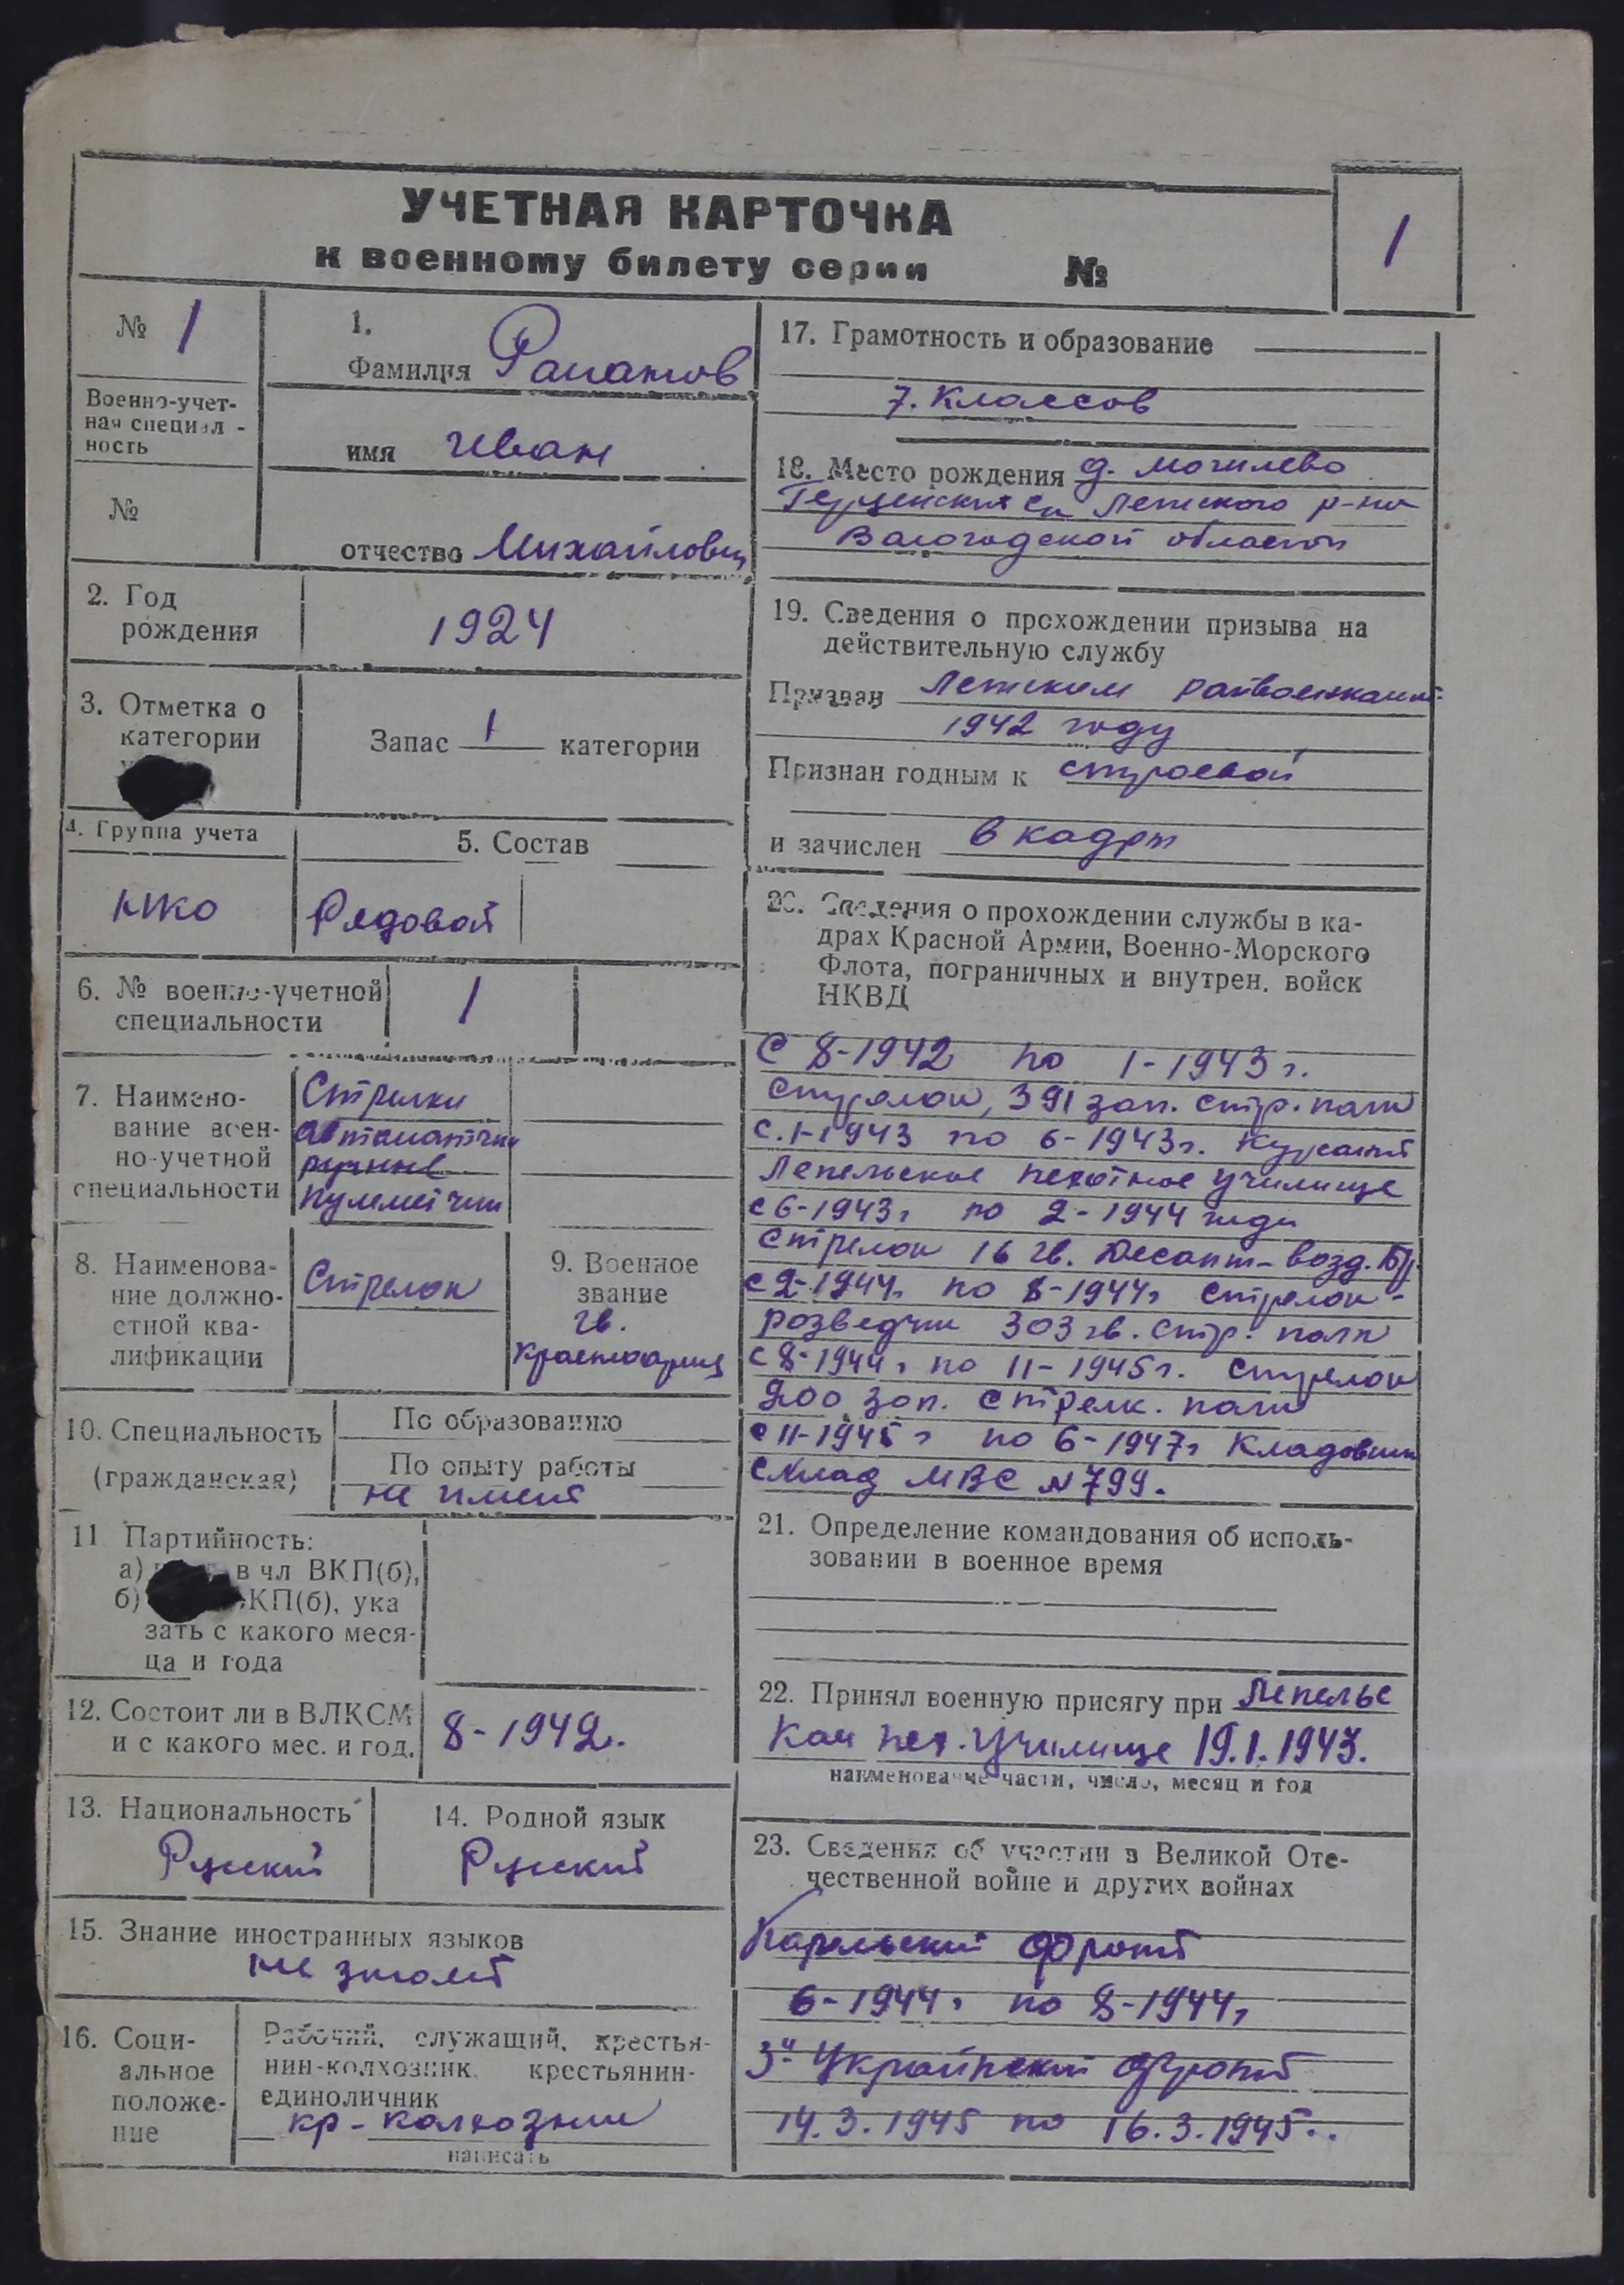 УЧЕТНАЯ КАРТОЧКА
к военному билету серии №
1
№ 1
Военно-учет-
ная специал-
ность
№
1.
Фамилия
имя Иван
отчество Михайлович
2. Год
рождения
1924
3. Отметка о
категории
Запас 1 категории
4. Группа учета
НКО
5. Состав
Рядовой
6. № военно-учетной
специальности
1
7. Наимено-
вание воен-
но-учетной
специальности
Стрелки
автоматчики
ручные
пулеметчики
8. Наименова-
ние должно-
стной ква-
лификации
Стрелок
9. Военное
звание
гв.
красноармеец
10. Специальность
(гражданская)
По образованию
По опыту работы
не имеет
11 Партийность:
а) в чл ВКП(б),
б) ВКП(б), ука
зать с какого меся-
ца и года
12. Состоит ли в ВЛКСМ
и с какого мес. и год.
8-1942.
13. Национальность
Русский
14. Родной язык
Русский
15. Знание иностранных языков
не знает
16. Соци-
альное
положе-
ние
Рабочий, служащий, крестья-
нин-колхозник крестьянин-
единоличник
кр-колхозник
написать
17. Грамотность и образование
7. Классов
18. Место рождения д. Могилево
с/с р-на
Вологодской области
19. Сведения о прохождении призыва на
действительную службу
Призван райвоенкомат
1942 году
Признан годным к строевой
и зачислен в кадры
20. Сведения о прохождении службы в ка-
драх Красной Армии, Военно-Морского
Флота, пограничных и внутрен. войск
НКВД
С 8-1942 по 1-1943 г.
стрелок, 391 зап. стр. полк
с. 1-1943 по 6-1943 г. Курсант
Лепельское пехотное училище
с 6-1943 г по 2-1944 года
Стрелок 16 гв. Десант-возд. Бр.
с 2-1944 г. по 8-1944 г Стрелок-
розведчик 303 гв. стр. полк
с 8-1944 г по 11-1945 г. стрелок
200 зап. стрелк. полк
с 11-1945 г по 6-1947 г Кладовщик
склад МВС N 799.
21. Определение командования об исполь-
зовании в военное время
22. Принял военную присягу при Лепельс
Ком пех. Училище 19.1.1943.
наименование части, число, месяц и год
23. Сведения об участии в Великой Оте-
чественной войне и других войнах
Карельский фронт
6-1944 г по 8-1944 г
3й Украинский фронт
14.3.1945 по 16.3.1945..